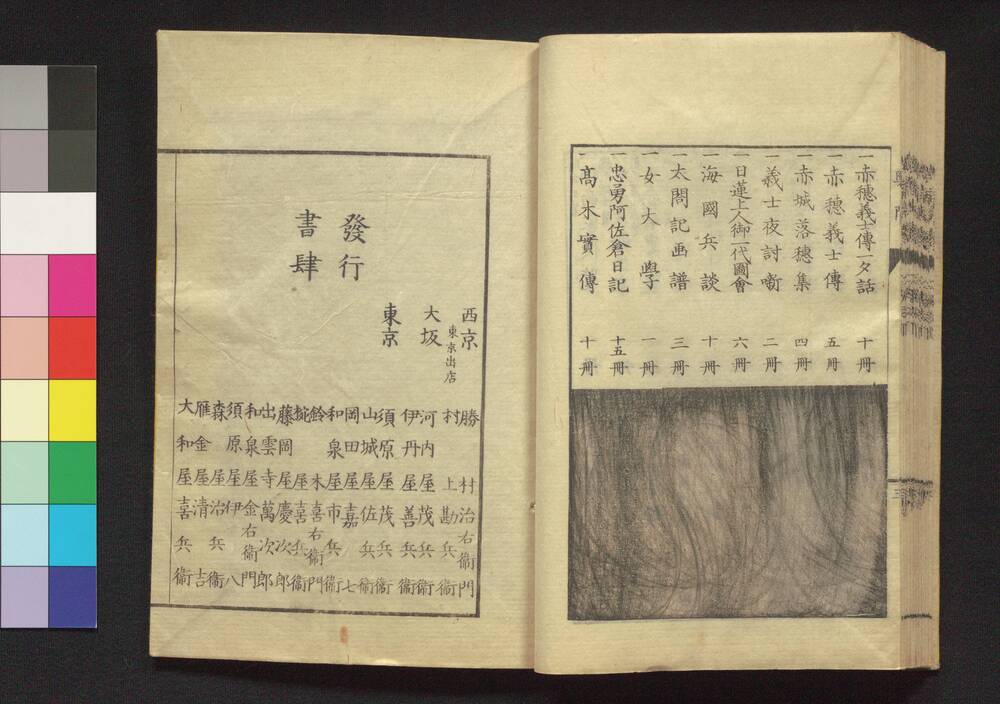 一赤穗義士傳一夕話　十冊
一赤穗義士傳　五冊
一赤城落穗集　四冊
一義士夜討噺　二冊
一日蓮上人御一代圖會　六冊
一海國兵談　十冊
一太閤記画譜　三冊
一女大學　一冊
一忠勇阿佐倉日記　十五冊
一髙木實傳　十冊
發行
書肆
西京　勝村治右衞門
東京出店　村上勘兵衞
大坂　河内屋茂兵衞
伊丹屋善兵衞
東京　須原屋茂兵衞
山城屋佐兵衞
岡田屋嘉七
和泉屋市兵衞
鈴木喜右衞門
椀屋喜兵衞
藤岡屋慶次郎
出雲寺萬次郎
和泉屋金右衞門
須原屋伊八
森屋治兵衞
雁金屋清吉
大和屋喜兵衞